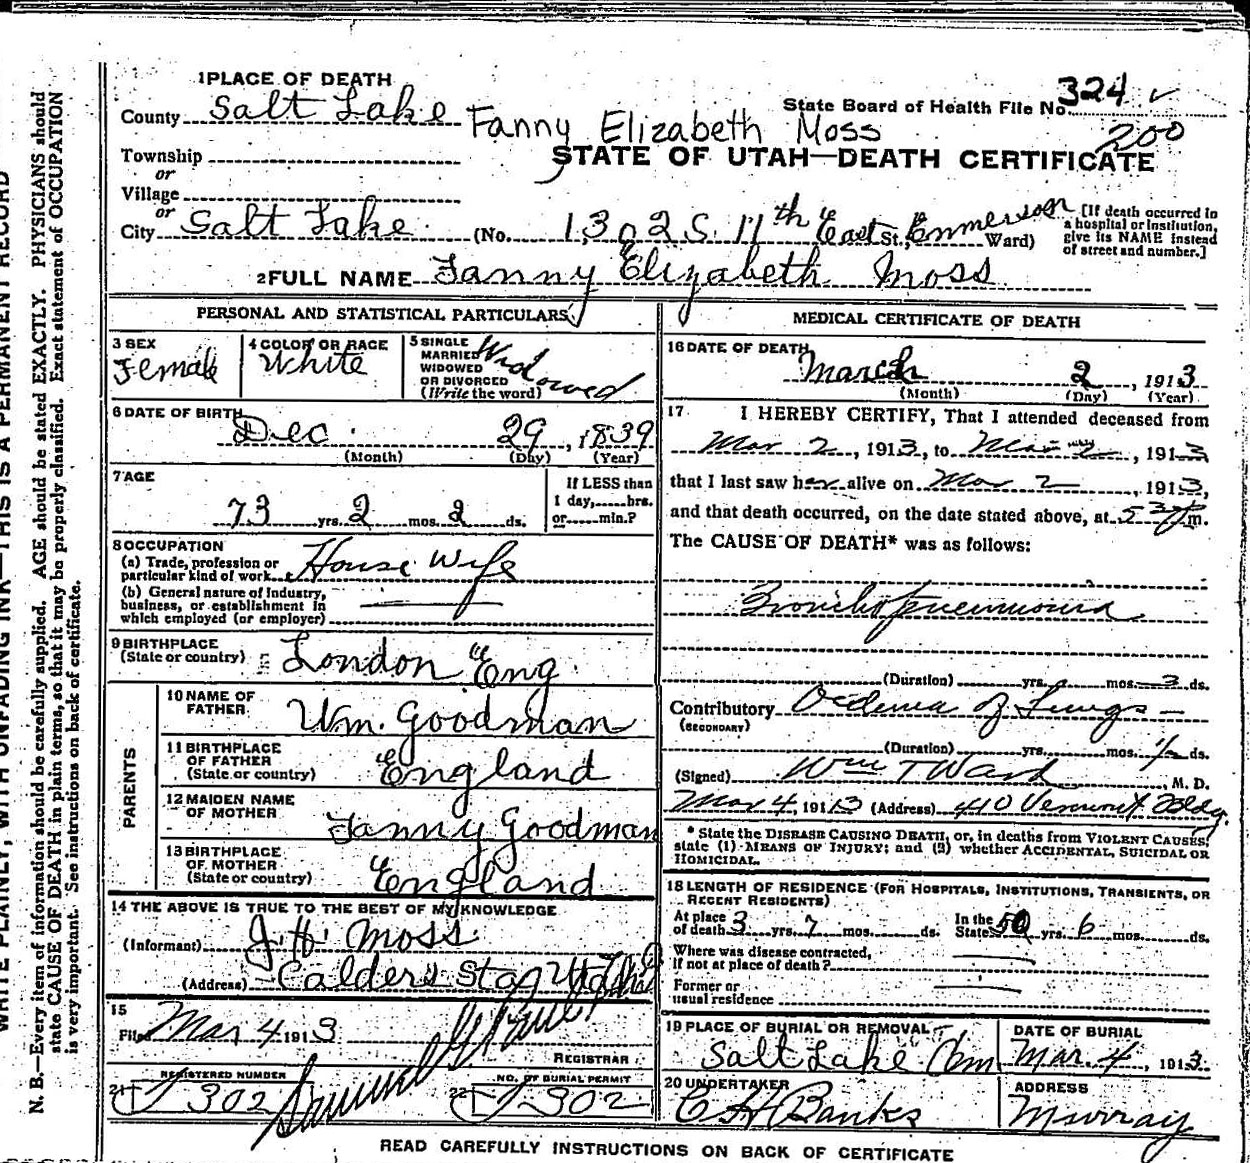 1 PLACE OF DEATH
County Salt Lake
State Board of Health File No. 324
Fanny Elizabeth Moss
200
STATE OF UTAH—DEATH CERTIFICATE
Township
or
Village
or
City Salt Lake (No. 1302 S. 11th East St., Emmerson Ward)
[If death occurred in a hospital or institution, give its NAME instead of street and number.]
2 FULL NAME Fanny Elizabeth Moss
PERSONAL AND STATISTICAL PARTICULARS
3 SEX
Female
4 COLOR OR RACE
White
5 SINGLE
MARRIED
WIDOWED
OR DIVORCED
(Write the word)
Widowed
6 DATE OF BIRTH
Dec. 29, 1839
(Month) (Day) (Year)
7 AGE
73 yrs. 2 mos. 2 ds.
If LESS than
1 day, hrs.
or min.?
8 OCCUPATION
(a) Trade, profession or
particular kind of work House Wife
(b) General nature of industry,
business, or establishment in
which employed (or employer)
9 BIRTHPLACE
(State or country) London Eng.
PARENTS
10 NAME OF
FATHER Wm. Goodman
11 BIRTHPLACE
OF FATHER
(State or country) England
12 MAIDEN NAME
OF MOTHER Fanny Goodman
13 BIRTHPLACE
OF MOTHER
(State or country) England
14 THE ABOVE IS TRUE TO THE BEST OF MY KNOWLEDGE
(Informant) J. H. Moss
(Address) Calders Sta
15
Filed Mar 4 1913
REGISTRAR
REGISTERED NUMBER
21 302
NO. OF BURIAL PERMIT
22 302
MEDICAL CERTIFICATE OF DEATH
16 DATE OF DEATH
March 2, 1913
(Month) (Day) (Year)
17 I HEREBY CERTIFY, That I attended deceased from
Mar 2, 1913, to Mar 2, 1913
that I last saw her alive on Mar 2, 1913,
and that death occurred, on the date stated above, at 5 30 P m.
The CAUSE OF DEATH* was as follows:
Broncho pneumonia
(Duration) yrs. mos. 3 ds.
Contributory Oedema of Lungs
(SECONDARY)
(Duration) yrs. mos. 1/2 ds.
(Signed) Wm T Ward, M. D.
Mar 4, 1913 (Address) 410 Vermont Bldg.
* State the DISEASE CAUSING DEATH, or, in deaths from VIOLENT CAUSES,
state (1) MEANS OF INJURY; and (2) whether ACCIDENTAL, SUICIDAL OR
HOMICIDAL.
18 LENGTH OF RESIDENCE (FOR HOSPITALS, INSTITUTIONS, TRANSIENTS, OR
RECENT RESIDENTS)
At place
of death 3 yrs. 7 mos. ds.
In the
State 50 yrs. 6 mos. ds.
Where was disease contracted,
if not at place of death?
Former or
usual residence
19 PLACE OF BURIAL OR REMOVAL
Salt Lake Cem
DATE OF BURIAL
Mar. 4, 1913
20 UNDERTAKER
C H Banks
ADDRESS
Murray
READ CAREFULLY INSTRUCTIONS ON BACK OF CERTIFICATE
WRITE PLAINLY, WITH UNFADING INK—THIS IS A PERMANENT RECORD
N. B.—Every item of information should be carefully supplied. AGE should be stated EXACTLY. PHYSICIANS should
state CAUSE OF DEATH in plain terms, so that it may be properly classified. Exact statement of OCCUPATION
is very important. See instructions on back of certificate.